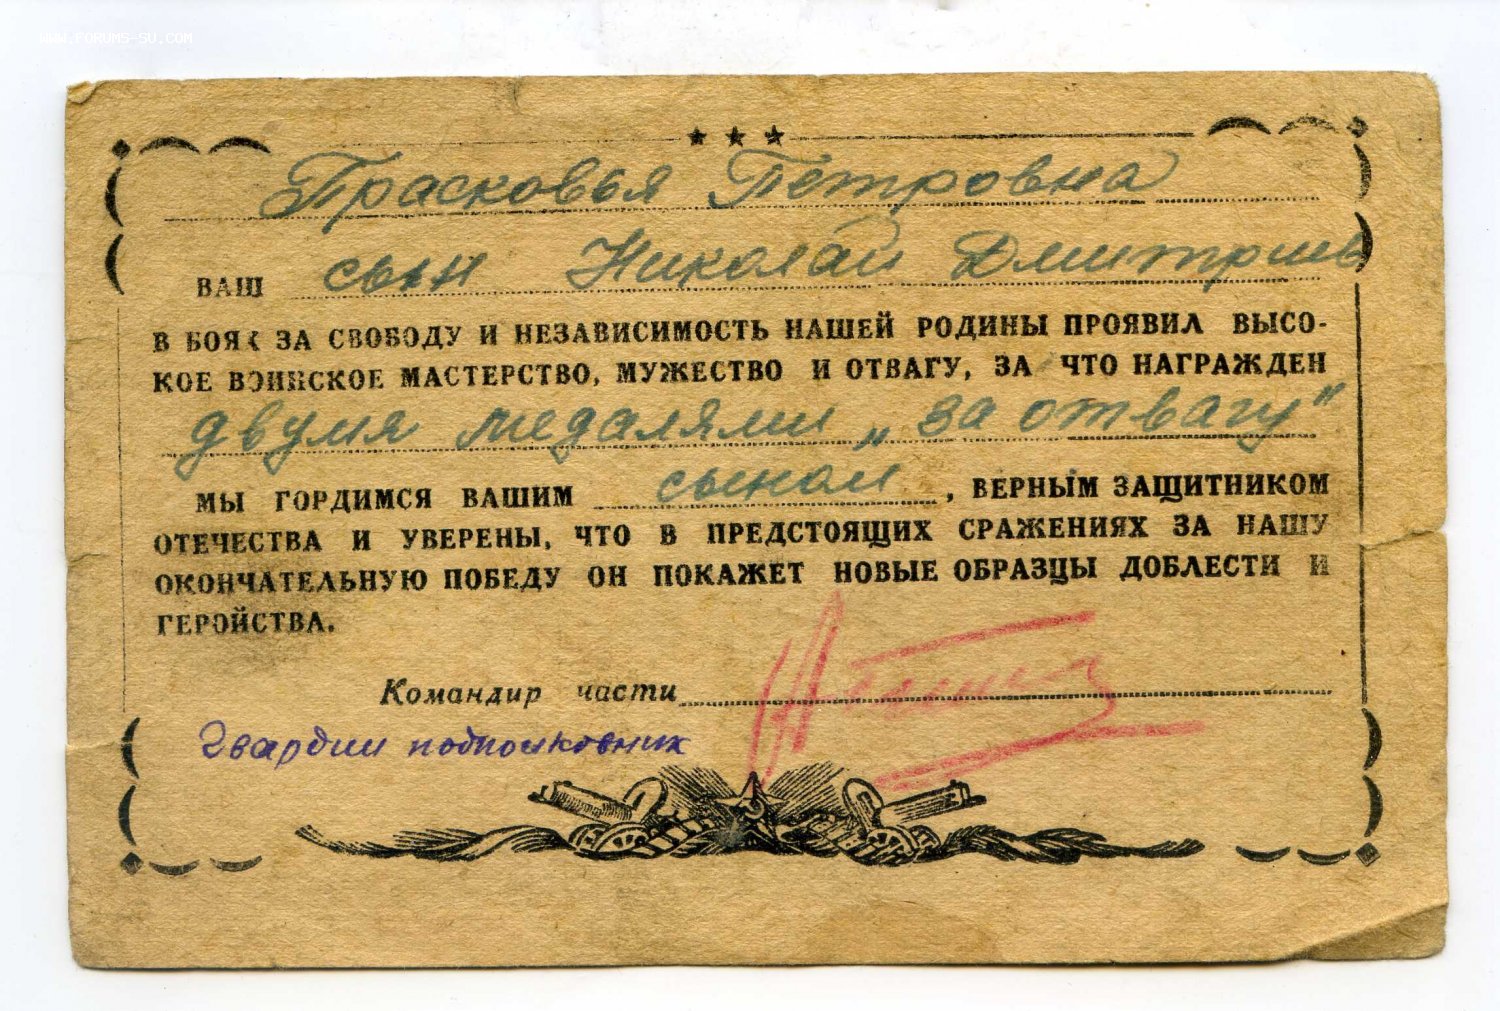 WWW.FORUMS-SU.COM
Прасковья Петровна
ВАШ сын Николай Дмитриев
В БОЯХ ЗА СВОБОДУ И НЕЗАВИСИМОСТЬ НАШЕЙ РОДИНЫ ПРОЯВИЛ ВЫСО-
КОЕ ВОИНСКОЕ МАСТЕРСТВО, МУЖЕСТВО И ОТВАГУ, ЗА ЧТО НАГРАЖДЕН
двумя медалями „за отвагу"
МЫ ГОРДИМСЯ ВАШИМ сыном, ВЕРНЫМ ЗАЩИТНИКОМ
ОТЕЧЕСТВА И УВЕРЕНЫ, ЧТО В ПРЕДСТОЯЩИХ СРАЖЕНИЯХ ЗА НАШУ
ОКОНЧАТЕЛЬНУЮ ПОБЕДУ ОН ПОКАЖЕТ НОВЫЕ ОБРАЗЦЫ ДОБЛЕСТИ И
ГЕРОЙСТВА.
Командир части
Гвардии подполковник